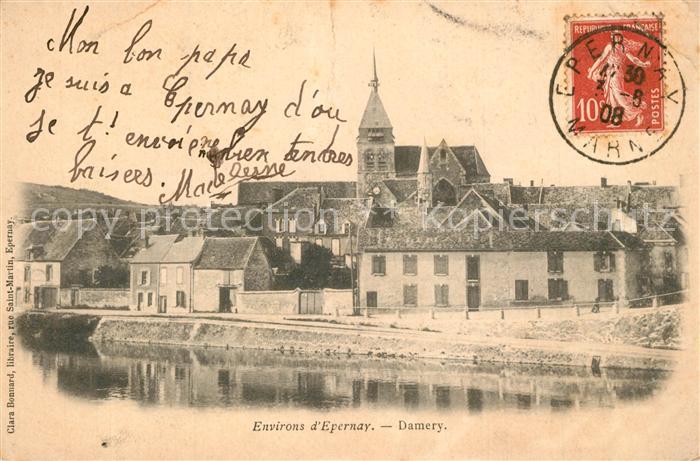 Mon bon papa
je suis a Epernay d'ou
je t'envoie bien tendres
baisers. Madeleine
REPUBLIQUE FRANÇAISE
10c
POSTES
EPERNAY
30
-8
08
MARNE
© copyright delcampe
Clara Bonnard, libraire, rue Saint-Martin, Epernay.
Environs d'Epernay. — Damery.